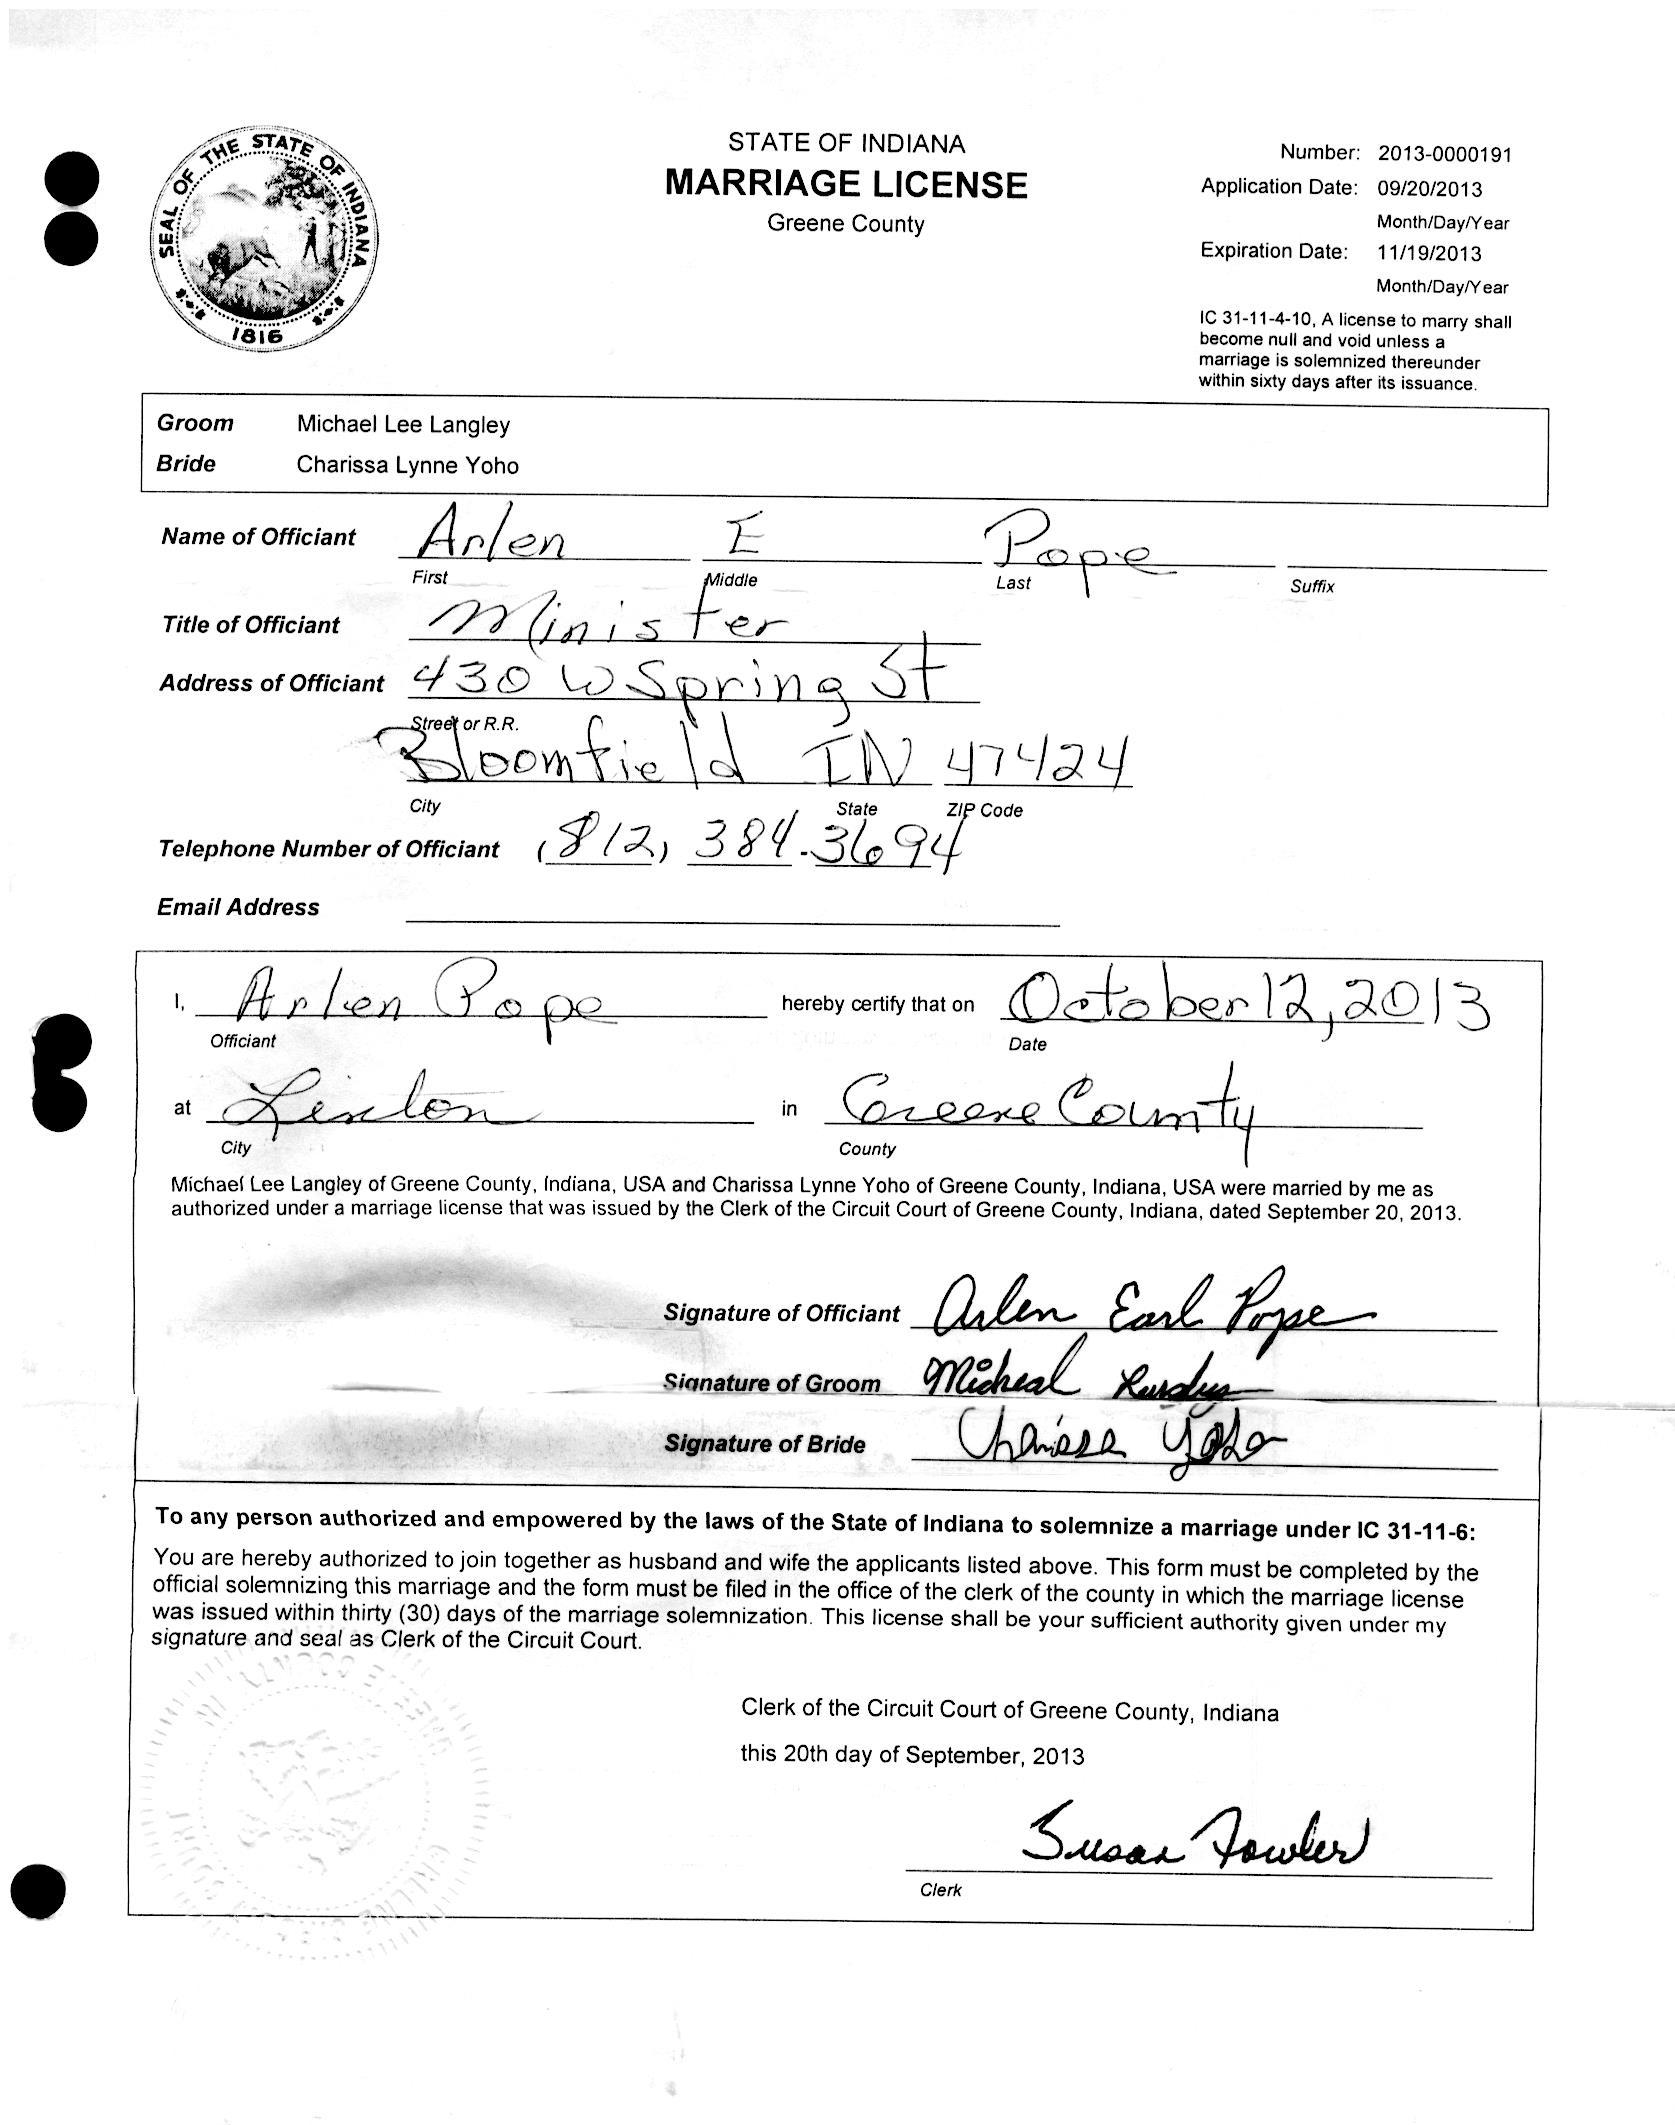 SEAL OF THE STATE OF INDIANA
1816
STATE OF INDIANA
MARRIAGE LICENSE
Greene County
Number: 2013-0000191
Application Date: 09/20/2013
Month/Day/Year
Expiration Date: 11/19/2013
Month/Day/Year
IC 31-11-4-10, A license to marry shall
become null and void unless a
marriage is solemnized thereunder
within sixty days after its issuance.
Groom Michael Lee Langley
Bride Charissa Lynne Yoho
Name of Officiant Arlen E Pope
First Middle Last Suffix
Title of Officiant Minister
Address of Officiant 430 W Spring St
Street or R.R.
Bloomfield IN 47424
City State ZIP Code
Telephone Number of Officiant (812) 384-3694
Email Address
I, Arlen Pope hereby certify that on October 12, 2013
Officiant Date
at Linton in Greene County
City County
Michael Lee Langley of Greene County, Indiana, USA and Charissa Lynne Yoho of Greene County, Indiana, USA were married by me as
authorized under a marriage license that was issued by the Clerk of the Circuit Court of Greene County, Indiana, dated September 20, 2013.
Signature of Officiant Arlen Earl Pope
Signature of Groom Micheal
Signature of Bride Charissa Yoho
To any person authorized and empowered by the laws of the State of Indiana to solemnize a marriage under IC 31-11-6:
You are hereby authorized to join together as husband and wife the applicants listed above. This form must be completed by the
official solemnizing this marriage and the form must be filed in the office of the clerk of the county in which the marriage license
was issued within thirty (30) days of the marriage solemnization. This license shall be your sufficient authority given under my
signature and seal as Clerk of the Circuit Court.
Clerk of the Circuit Court of Greene County, Indiana
this 20th day of September, 2013
Susan Fowler
Clerk